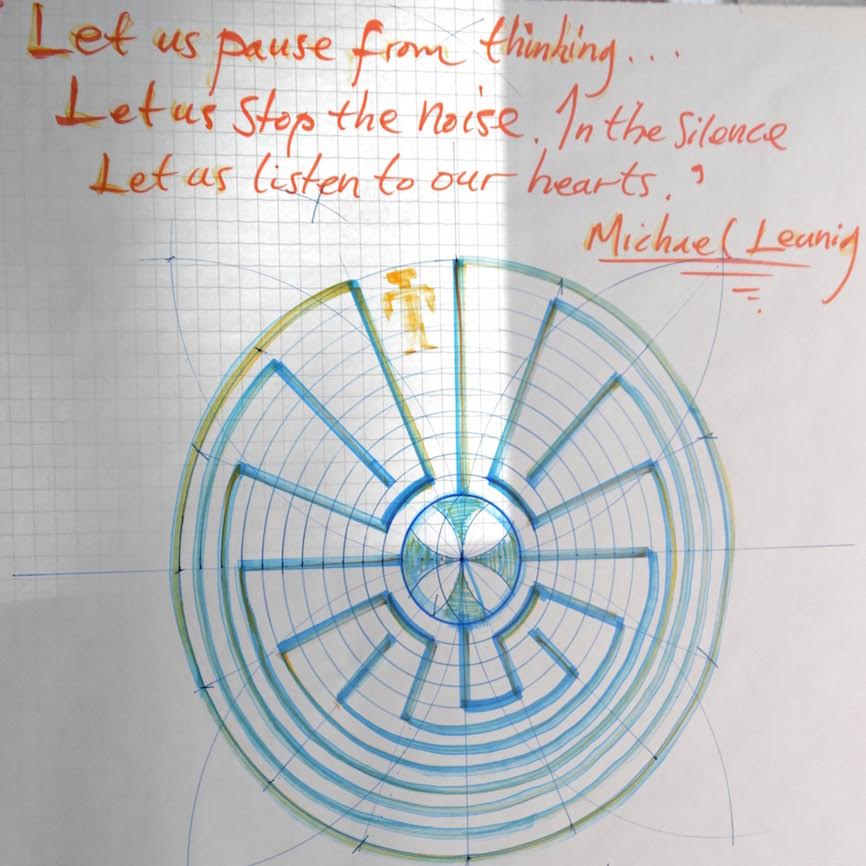 Let us pause from thinking...
Let us stop the noise. In the silence
Let us listen to our hearts.'
Michael Leunig